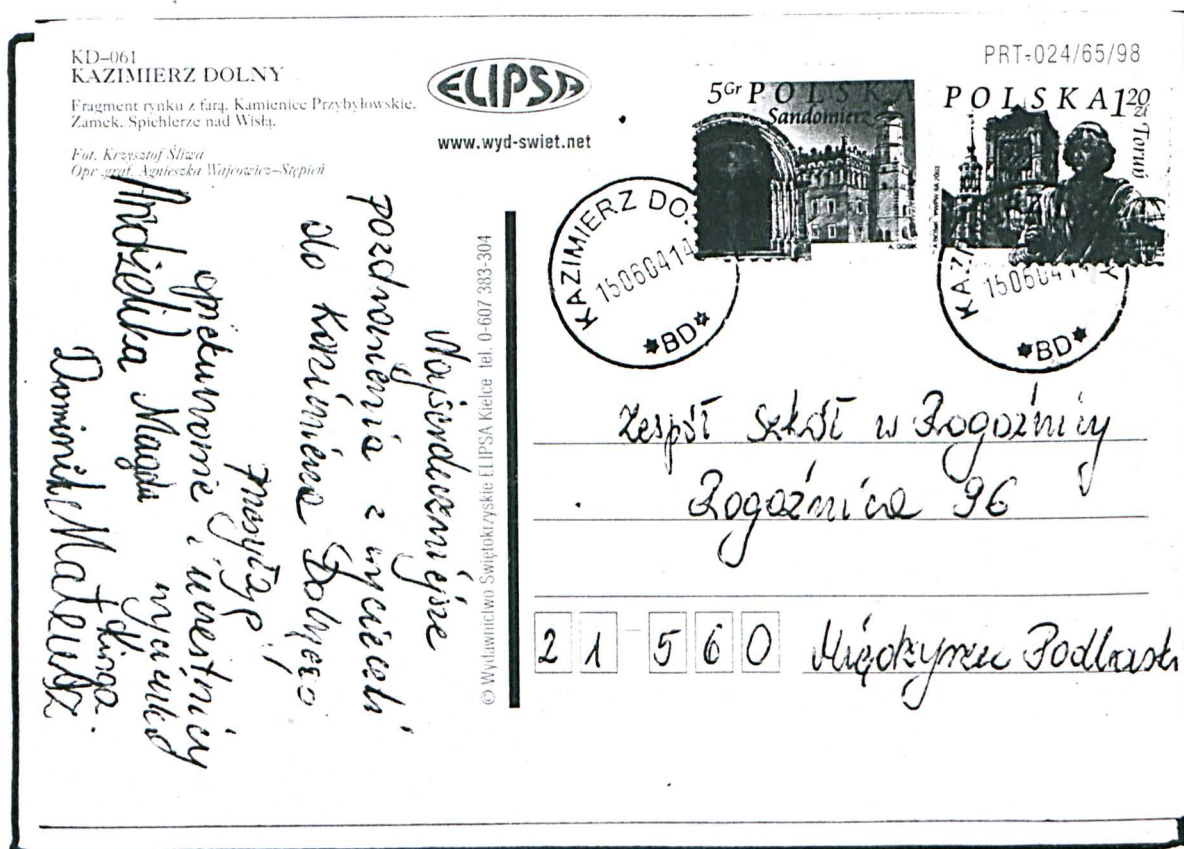 KD–061
KAZIMIERZ DOLNY
Fragment rynku z farą. Kamienice Przybyłowskie.
Zamek. Spichlerze nad Wisłą.
Fot. Krzysztof Śliwa
Opr. graf. Agnieszka Wajrowicz–Stępień
ELIPSA
www.wyd-swiet.net
PRT-024/65/98
5Gr POLSKA
Sandomierz
POLSKA 1,20 zł
Toruń
KAZIMIERZ DO
15060414
*BD*
KAZ
15060414
*BD*
© Wydawnictwo Świętokrzyskie ELIPSA Kielce tel. 0-607 383-304
Najserdeczniejsze
pozdrowienia z wycieczki
do Kazimierza Dolnego
przesyłają
opiekunowie i uczestnicy
wycieczki
Andżelika Magda Kinga
Dominik Mateusz
Zespół Szkół w Rogoźnicy
Rogoźnica 96
21-560 Międzyrzec Podlaski